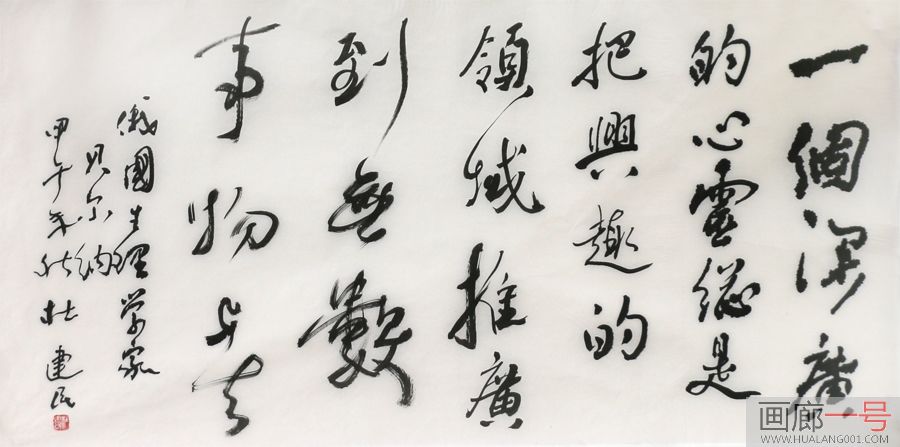 一個深廣
的心靈總是
把興趣的
領域推廣
到無數
事物上去
俄國生理學家
貝尔納
甲午年秋杜建民
画廊一号
WWW.HUALANG001.COM